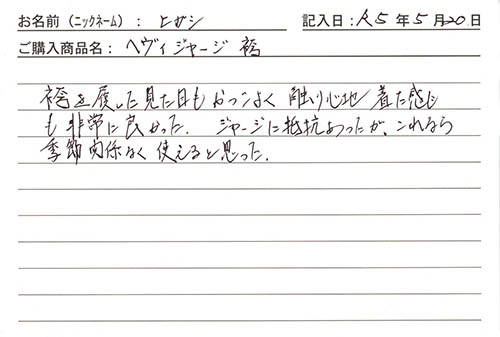 お名前（ニックネーム）： ヒサシ 記入日：R5年5月20日
ご購入商品名：ヘヴィジャージ 袴
袴を履した見た目もかっこよく 触り心地 着た感じ
も非常に良かった. ジャージに抵抗あったが、これなら
季節関係なく使えると思った.